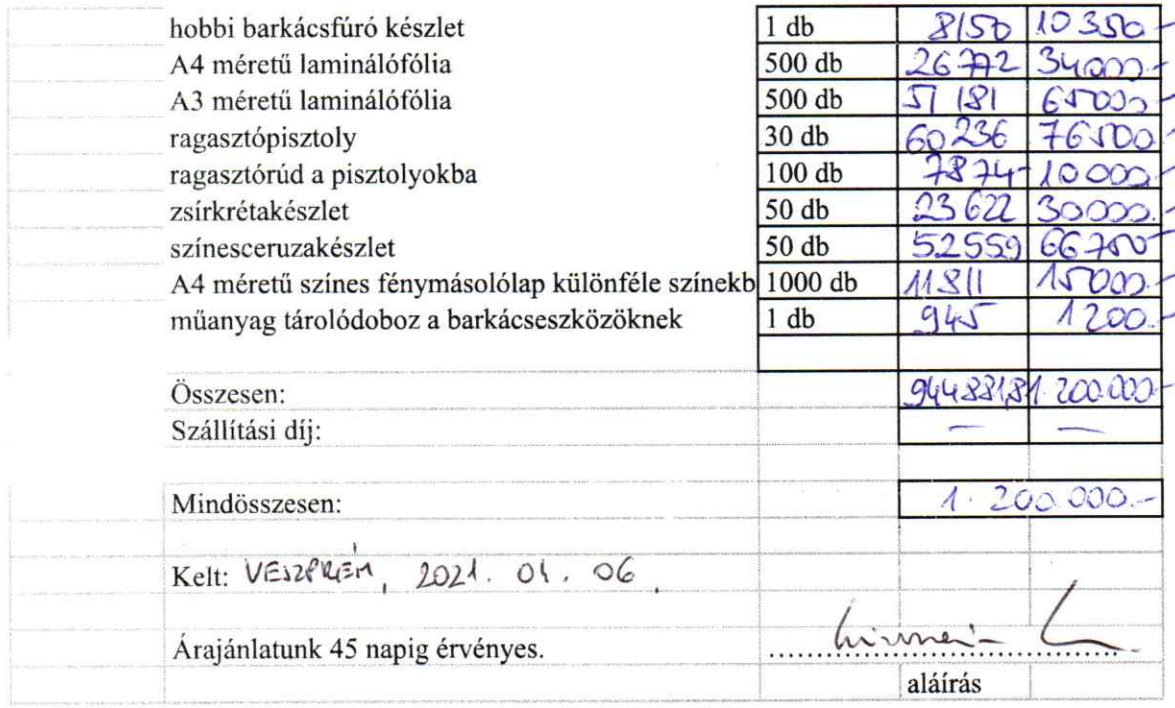 hobbi barkácsfúró készlet 1 db 8150 10 350.-
A4 méretű laminálófólia 500 db 26 772 34000.-
A3 méretű laminálófólia 500 db 51 181 65000.-
ragasztópisztoly 30 db 60 236 76500.-
ragasztórúd a pisztolyokba 100 db 7874.- 10 000.-
zsírkrétakészlet 50 db 23 622 30000.-
színesceruzakészlet 50 db 52559 66750.-
A4 méretű színes fénymásolólap különféle színekb 1000 db 11811 15000.-
műanyag tárolódoboz a barkácseszközöknek 1 db 945 1200.-
Összesen: 944881,8 1.200.000.-
Szállítási díj: — —
Mindösszesen: 1.200.000.-
Kelt: VESZPRÉM, 2021. 04. 06.
Árajánlatunk 45 napig érvényes.
aláírás